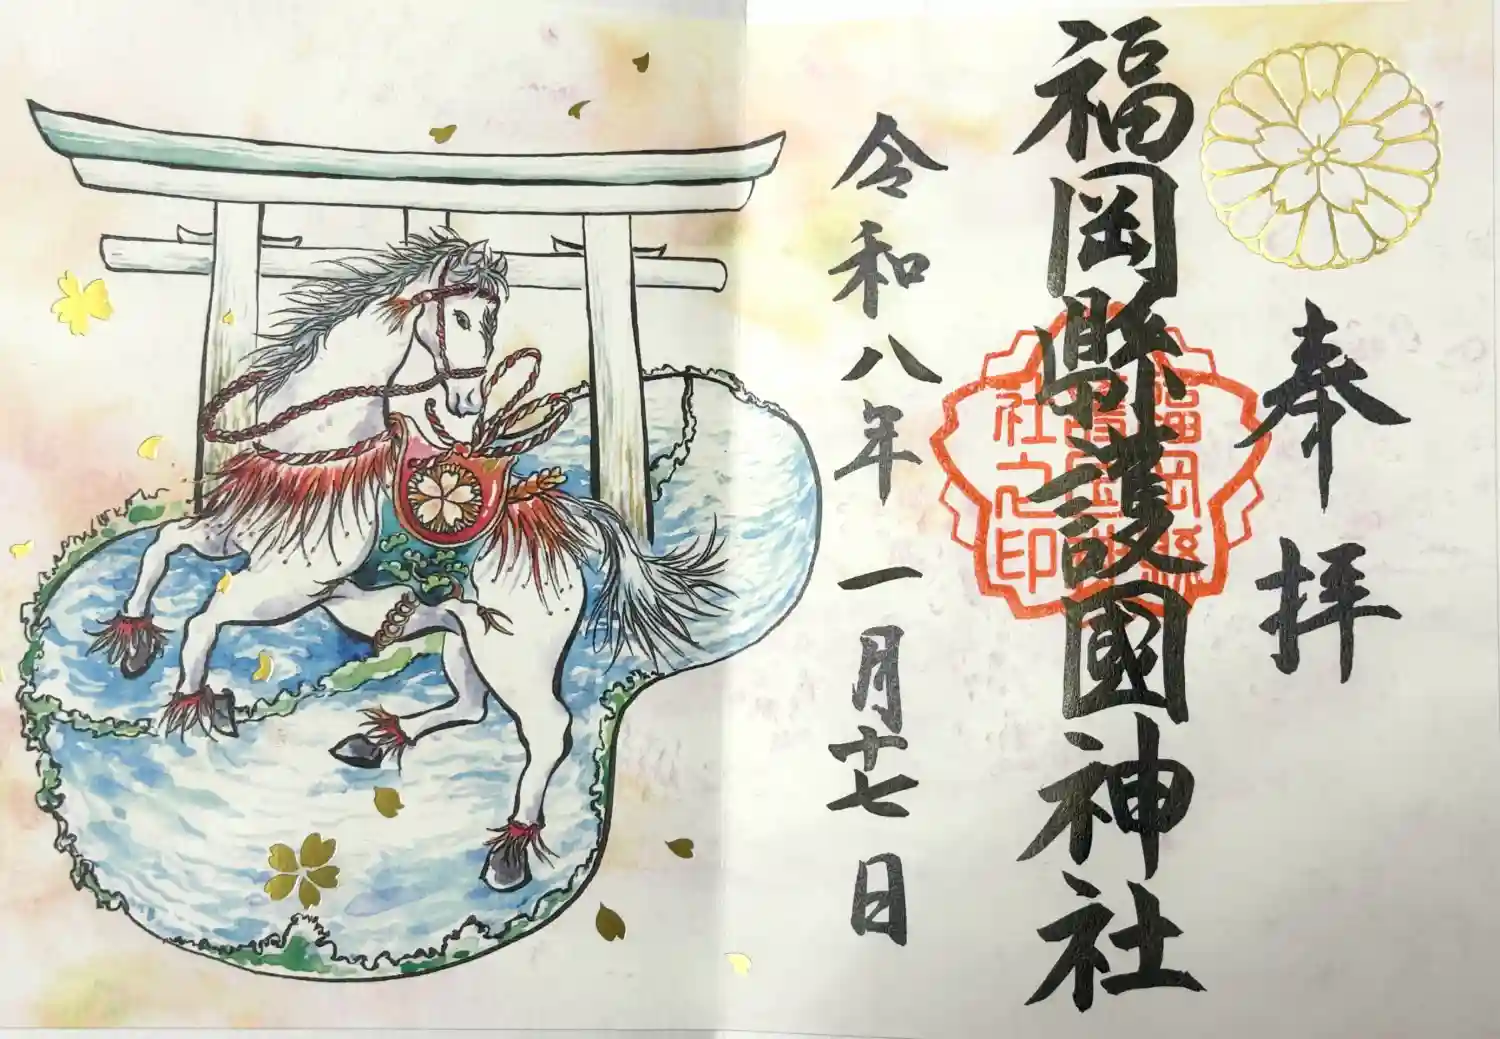 奉拝
福岡縣護國神社
福岡縣
護國神
社之印
令和八年一月十七日